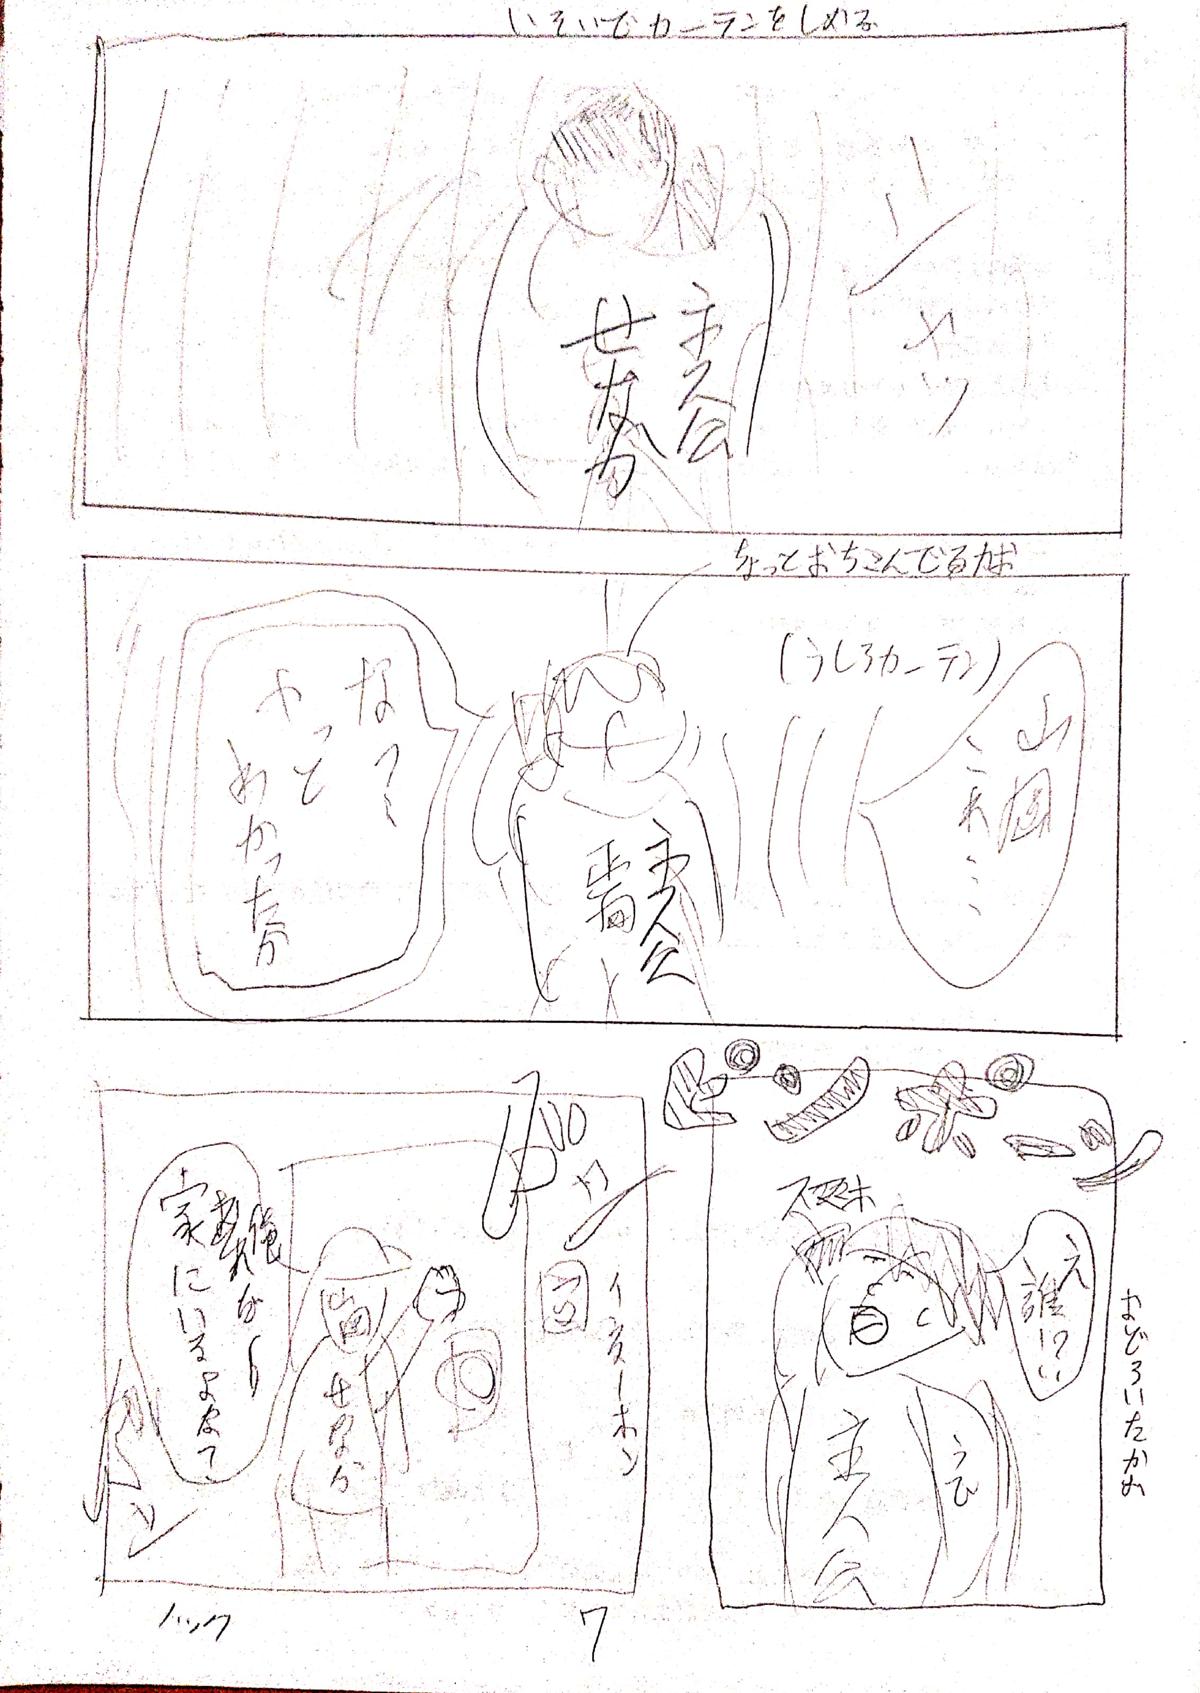 いそいでカーテンをしめる
シャッ
主人公
せなか
ちょっとおちこんでるかお
(うしろカーテン)
山岡
これ…
主人公
正面
なって
やっと
わかったか
ピンポーン
スマホ
え
誰!?
おどろいたかお
主人公
うで
イヌターホン
山岡
せなか
俺
あれな〜
家にいるよなって
ノック
7